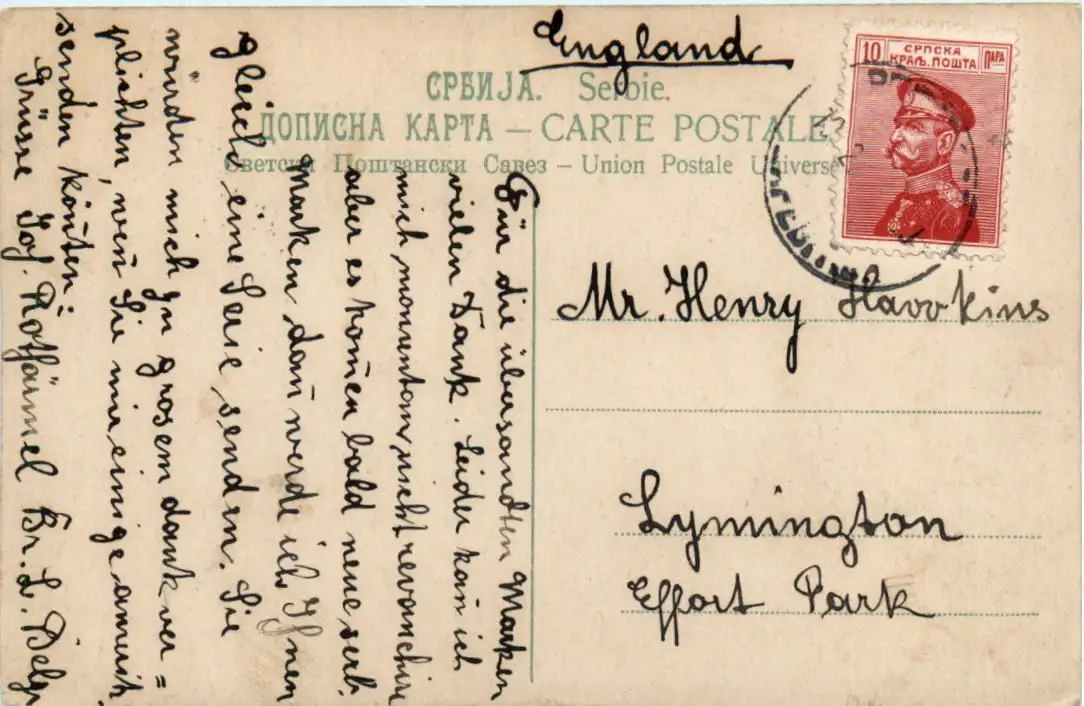 England
10 СРПСКА ПАРА
КРАЉ. ПОШТА
СРБИЈА. Serbie.
ДОПИСНА КАРТА — CARTE POSTALE
Светски Поштански Савез — Union Postale Universe
Mr. Henry Havvkins
Lymington
Effort Park
Für die übersandten Marken
vielen Dank. Leider kan̄ ich
mich momentan nicht revanchire
aber es kom̄en bald neue serb.
Marken, dan̄ werde ich Ihnen
gleich eine Serie senden. Sie
würden mich zu grosem dank ver=
plichten, wen̄ Sie mir einige amerik.
senden kön̄ten.
Grüsse Jos. Rothärmel Br. L. Belgr.